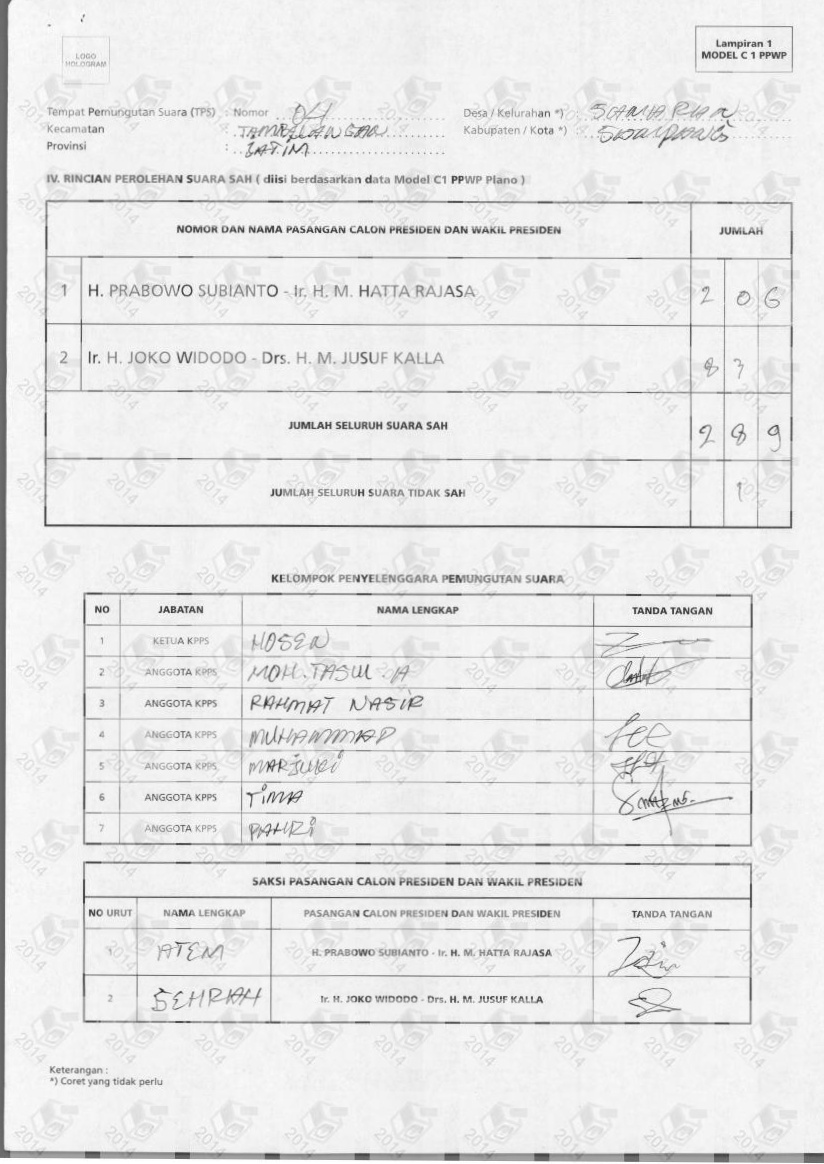 LOGO
HOLOGRAM
Lampiran 1
MODEL C 1 PPWP
Tempat Pemungutan Suara (TPS) : Nomor 04 Desa / Kelurahan *) :
Kecamatan : TAMBELANGAN Kabupaten / Kota *) :
Provinsi : JATIM
IV. RINCIAN PEROLEHAN SUARA SAH ( diisi berdasarkan data Model C1 PPWP Plano )
NOMOR DAN NAMA PASANGAN CALON PRESIDEN DAN WAKIL PRESIDEN JUMLAH
1 H. PRABOWO SUBIANTO - Ir. H. M. HATTA RAJASA 2 0 6
2 Ir. H. JOKO WIDODO - Drs. H. M. JUSUF KALLA 8 3
JUMLAH SELURUH SUARA SAH 2 8 9
JUMLAH SELURUH SUARA TIDAK SAH 1
KELOMPOK PENYELENGGARA PEMUNGUTAN SUARA
NO JABATAN NAMA LENGKAP TANDA TANGAN
1 KETUA KPPS HOSEN
2 ANGGOTA KPPS MOH. TASUL .A
3 ANGGOTA KPPS RAHMAT NASIR
4 ANGGOTA KPPS MUHAMMAD
5 ANGGOTA KPPS MARJUKI
6 ANGGOTA KPPS TIMA
7 ANGGOTA KPPS PAHRI
SAKSI PASANGAN CALON PRESIDEN DAN WAKIL PRESIDEN
NO URUT NAMA LENGKAP PASANGAN CALON PRESIDEN DAN WAKIL PRESIDEN TANDA TANGAN
1 ATEM H. PRABOWO SUBIANTO - Ir. H. M. HATTA RAJASA
2 SEHRIAH Ir. H. JOKO WIDODO - Drs. H. M. JUSUF KALLA
Keterangan :
*) Coret yang tidak perlu